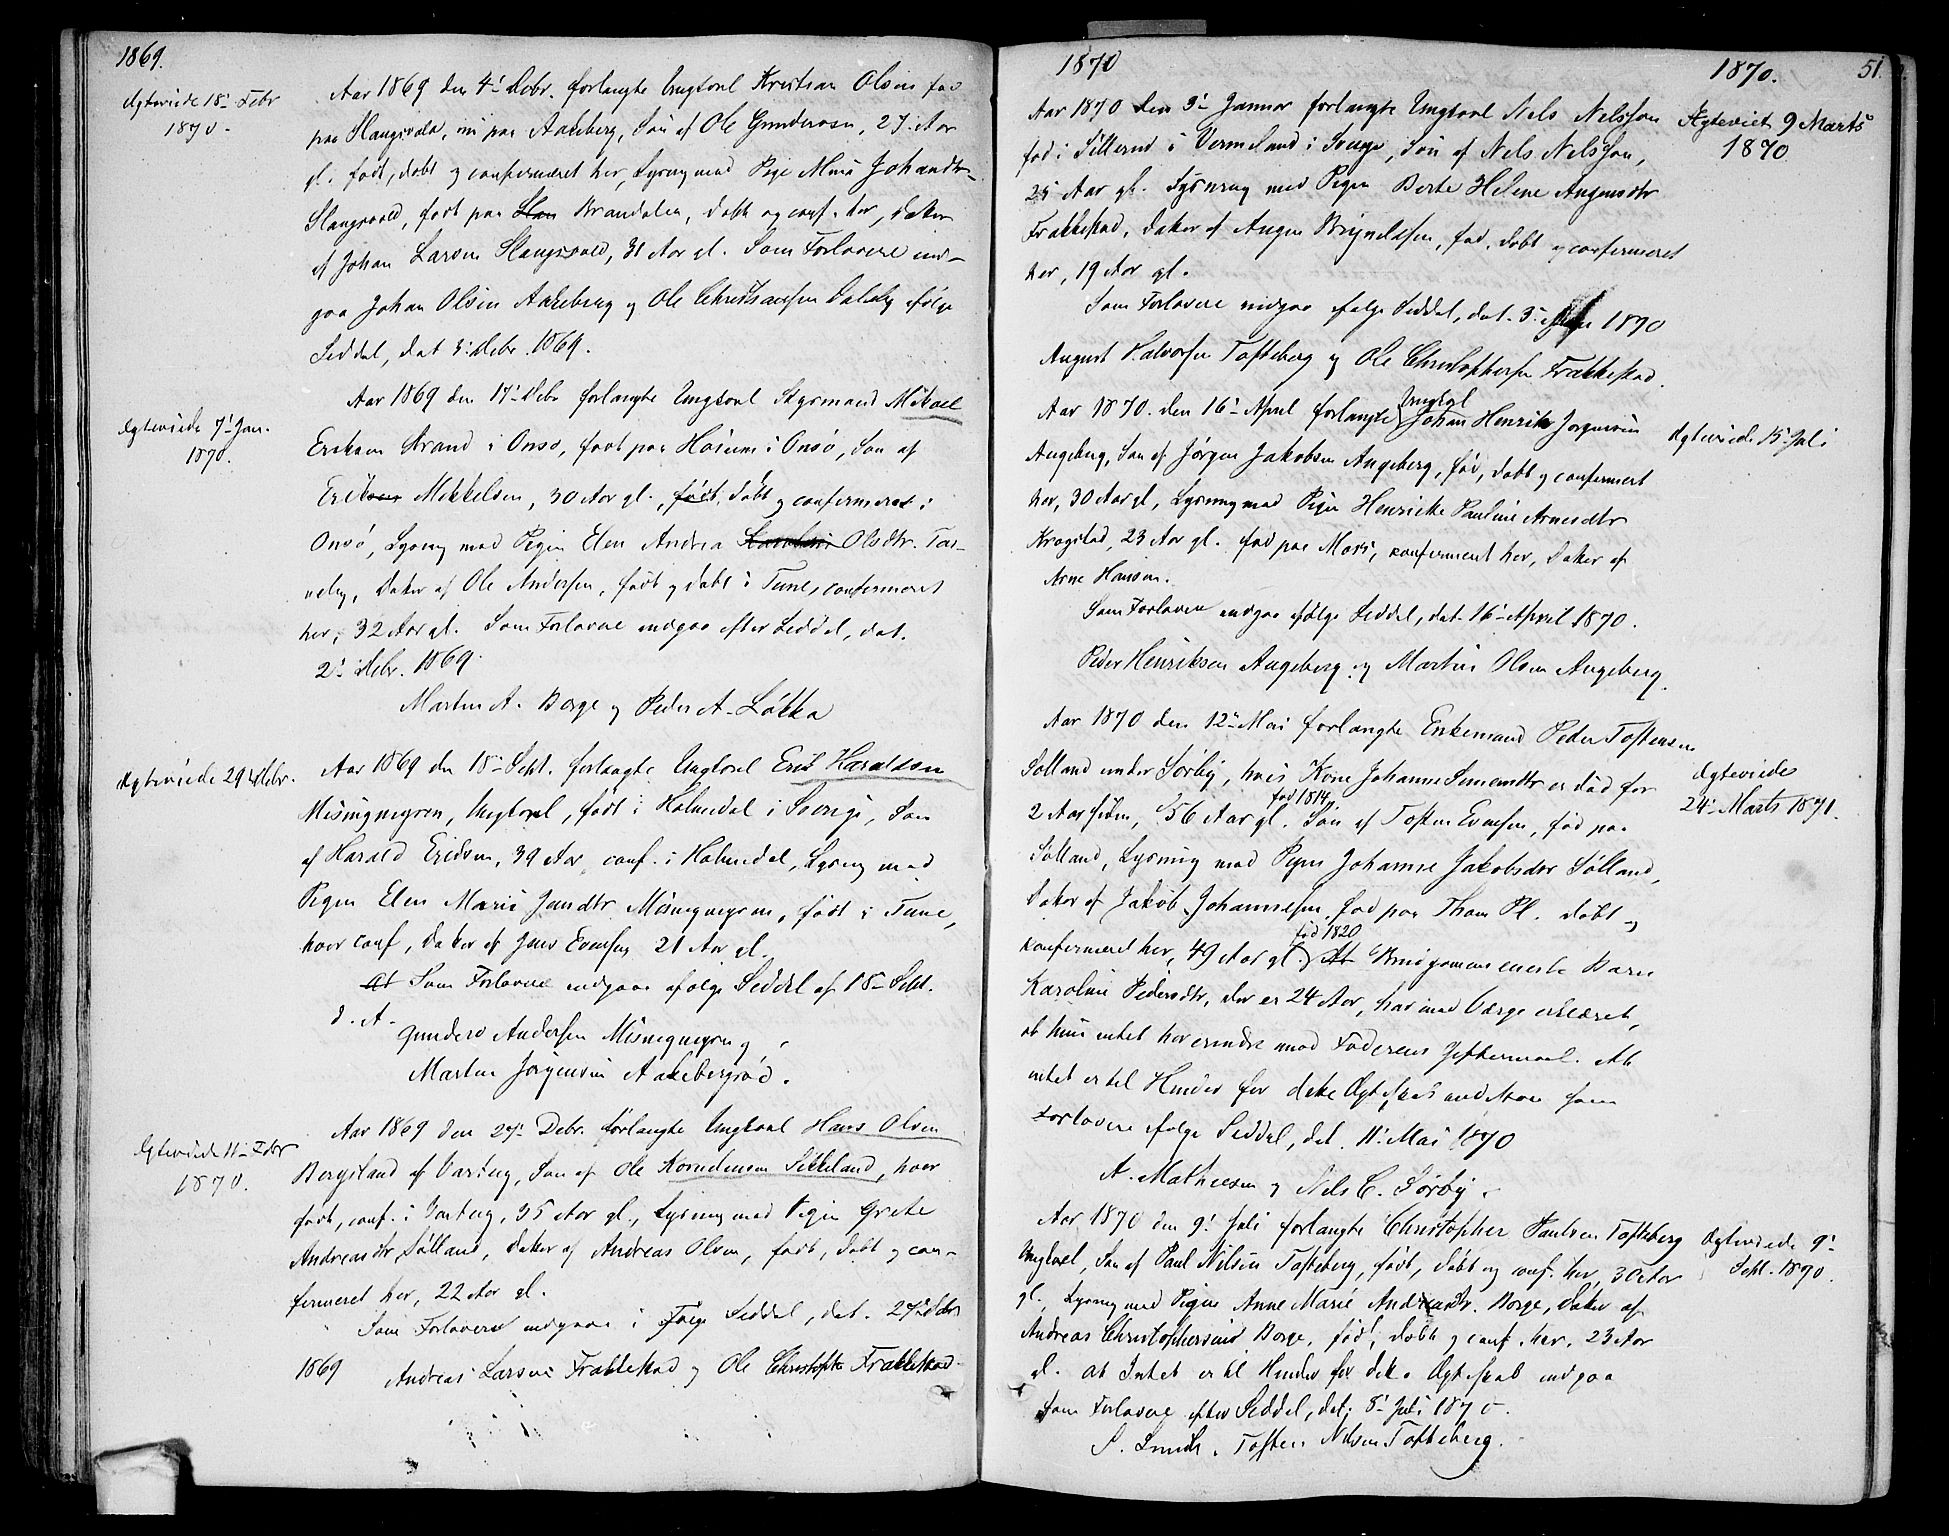 1869.
Ægteviede 18' Febr
1870.
Aar 1869 den 4' Debr. forlangte Ungkarl Kristian Olsen fød
paa Slangsvold, nu paa Aakeberg, Søn af Ole Gundersen, 27 Aar
gl. født, døbt og confirmeret her, Lysning med Pige Mina Johandtr
Slangsvold, født paa Brandalen, døbt og conf. her, Datter
af Johan Larsen Slangsvold, 31 Aar gl. Som Forlovere ind-
gaa Johan Olsen Aakeberg og Ole Christiansen Daleby ifølge
Seddel, dat 3' Debr. 1869.
Ægteviede 7' Jan.
1870.
Aar 1869 den 17' Debr forlangte Ungkarl Styrmand Mikael
Eriksen Strand i Onsø, født paa Høium i Onsø, Søn af
Erik Mikkelsen, 30 Aar gl., født, døbt og confirmeret i
Onsø, Lysning med Pigen Elen Andrea Olsdtr. Tor-
Datter af Ole Andersen, født og døbt i Tune, confirmeret
her, 32 Aar gl. Som Forlovere indgaa efter Seddel, dat.
2' Debr. 1869.
Martin A. Borge og Peder A. Løkka
Ægteviede 29' Debr.
Aar 1869 den 18' Sept. forlangte Ungkarl Erik Haraldsen
Misingmyren, Ungkarl, født i Holmedal i Sverige, Søn
af Harald Eriksen, 39 Aar, conf. i Holmedal, Lysning med
Pigen Elen Marie Jensdtr Misingmyren, født i Tune,
hvor conf, Datter af Jens Evensen 21 Aar gl.
at Som Forlovere indgaa ifølge Seddel af 18' Sept.
d. A.
Gunders Andersen Misingmyr og
Martin Jørgensen Aakebergrød.
Ægteviede 11' Febr
1870.
Aar 1869 den 27' Debr. forlangte Ungkarl Hans Olsen
Bergsland af Varteig, Søn af Ole Sikkeland, hvor
født, conf. i Varteig, 35 Aar gl., Lysning med Pigen Grete
Andreasdtr Sølland, Datter af Andreas Olsen, født, døbt og con-
firmeret her, 22 Aar gl.
Som Forlovere indgaa i Følge Seddel, dat. 27' Debr
1869 Andreas Larsen Frakkestad og Ole Christophe Frakkestad.
1870
1870.
51.
Aar 1870 den 3' Januar forlangte Ungkarl Nels Nelsson
fød i Sillerud i Vermeland i Sverige, Søn af Nels Nelsson,
25 Aar gl. Lysning med Pigen Berte Helene Augensdtr
Frakkestad, Datter af Augen Brynildsen, fød, døbt og confirmeret
her, 19 Aar gl.
Ægteviet 9 Marts
1870
Som Forlovere indgaa ifølge Seddel, dat. 3' 1870
August Halvorsen Tofteberg og Ole Christophersen Frakkestad.
Aar 1870. den 16' April forlangte Ungkarl Johan Henrik Jørgensen
Augeberg, Søn af Jørgen Jakobsen Augeberg, fød, døbt og confirmeret
her, 30 Aar gl, Lysning med Pigen Henrikke Pauline Arnesdtr
Krogstad, 23 Aar gl. fød paa Moss, confirmeret her, Datter af
Arne Hansen.
Ægteviede 15' Juli
Som Forlovere indgaa ifølge Seddel, dat. 16' April 1870.
Peder Henriksen Augeberg og Martin Olsen Augeberg.
Aar 1870 den 12' Mai forlangte Enkemand Peder Toftensen
Sølland under Sørby, hvis Kone Johanne Simensdtr er død for
2 Aar siden, 56 Aar gl. fød 1814, Søn af Toften Evensen, fød paa
Sølland, Lysning med Pigen Johanne Jakobsdtr Sølland,
Datter af Jakob Johannesen fød paa Thom Pl. døbt og
confirmeret her, 49 Aar gl. fød 1820 At Brudgommens eneste Barn
Karoline Pedersdtr, der er 24 Aar, har med Værge erklæret,
at hun intet har erindre mod Faderens Giftermaal. At
intet er til Hinder for dette Ægteskab indestaa som
Forlovere ifølge Seddel, dat. 11' Mai 1870
Ægteviedes
24' Marts 1871.
A. Mathiesen og Nils C. Sørby.
Aar 1870 den 9' Juli forlangte Christopher Paulsen Tofteberg
Ungkarl, Søn af Paul Nilsen Tofteberg, født, døbt og conf. her, 30 Aar
gl., Lysning med Pigen Anne Marie Andreasdtr. Borge, Datter af
Andreas Christophersen Borge, født, døbt og conf. her, 23 Aar
gl. At Intet er til Hinder for dette Ægteskab indgaa
som Forlovere efter Seddel, dat. 8' Juli 1870.
Ægteviede 9'
Sept. 1870.
Toften Nilsen Tofteberg.